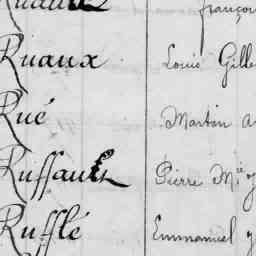 françoi
Ruaux Louis Gille
Rué Martin a
Ruffault Pierre M.ie
Rufflé Emmanuel